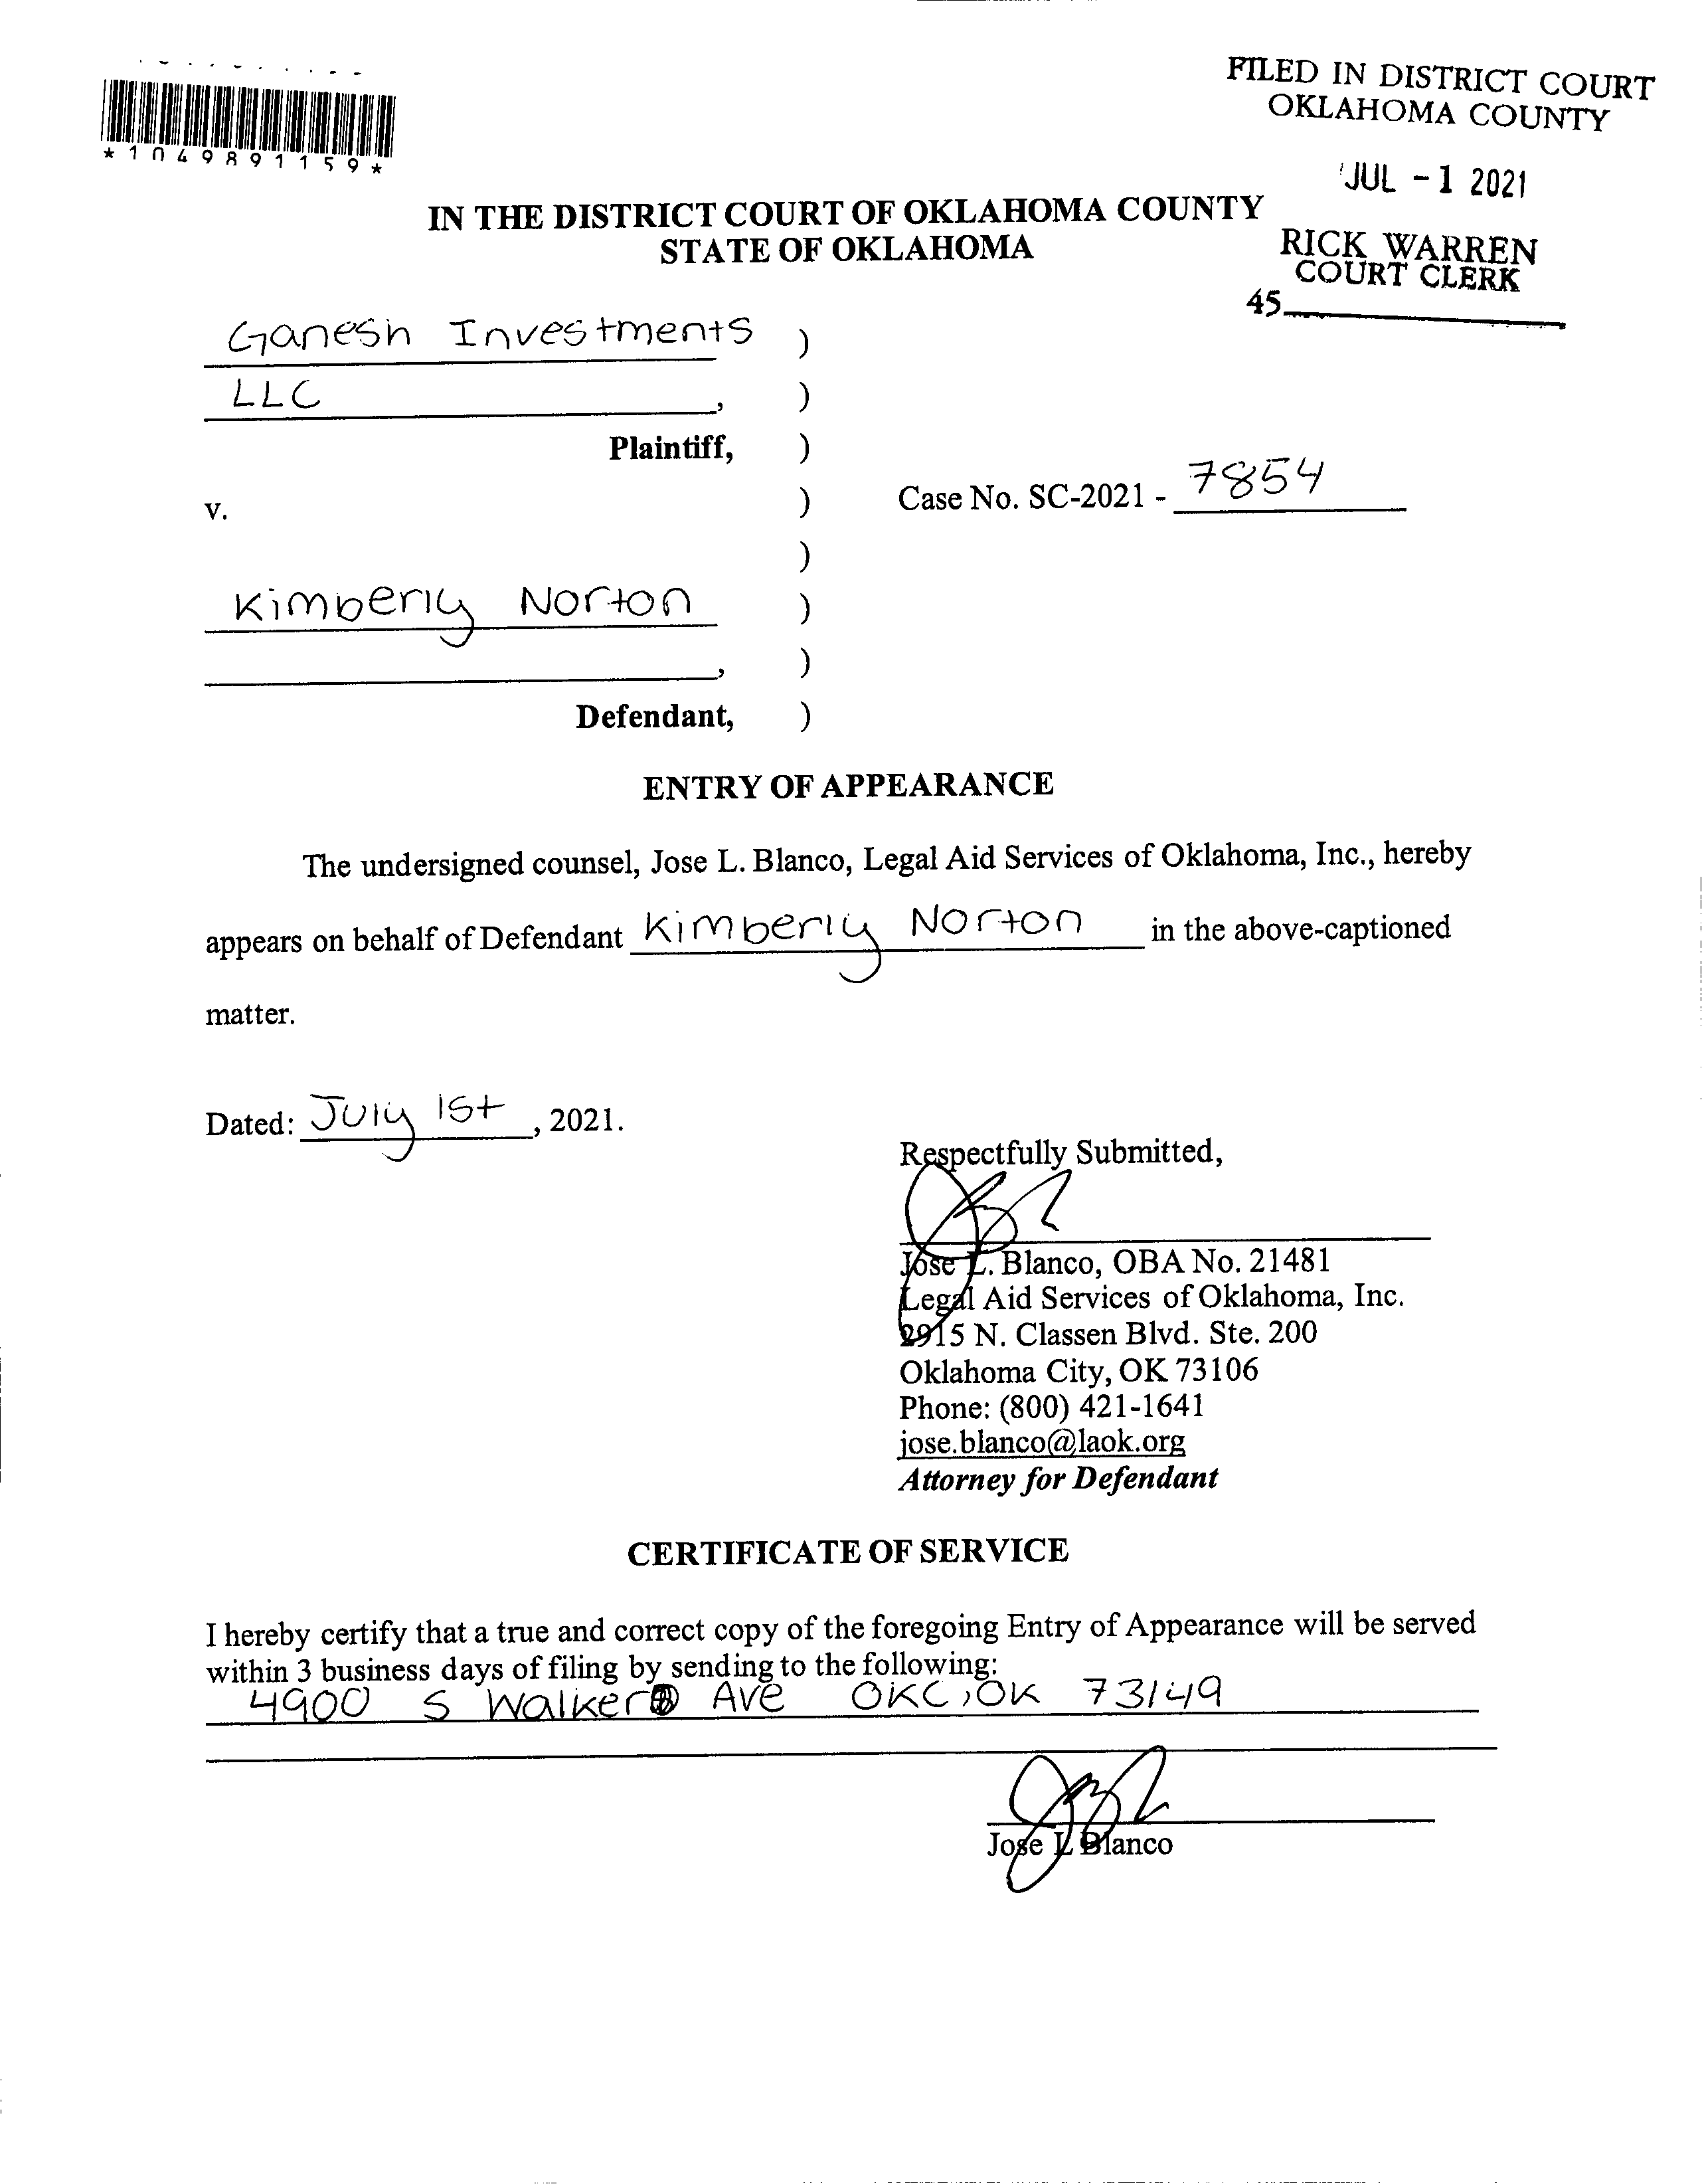 *1049891159*
FILED IN DISTRICT COURT
OKLAHOMA COUNTY
JUL - 1 2021
RICK WARREN
COURT CLERK
45
IN THE DISTRICT COURT OF OKLAHOMA COUNTY
STATE OF OKLAHOMA
Ganesh Investments )
LLC , )
Plaintiff, )
v. )
Case No. SC-2021 - 7854
)
Kimberly Norton )
, )
Defendant, )
ENTRY OF APPEARANCE
The undersigned counsel, Jose L. Blanco, Legal Aid Services of Oklahoma, Inc., hereby
appears on behalf of Defendant Kimberly Norton in the above-captioned
matter.
Dated: July 1st, 2021.
Respectfully Submitted,
Jose L. Blanco, OBA No. 21481
Legal Aid Services of Oklahoma, Inc.
2915 N. Classen Blvd. Ste. 200
Oklahoma City, OK 73106
Phone: (800) 421-1641
jose.blanco@laok.org
Attorney for Defendant
CERTIFICATE OF SERVICE
I hereby certify that a true and correct copy of the foregoing Entry of Appearance will be served
within 3 business days of filing by sending to the following:
4900 S Walker Ave OKC, OK 73149
Jose L Blanco